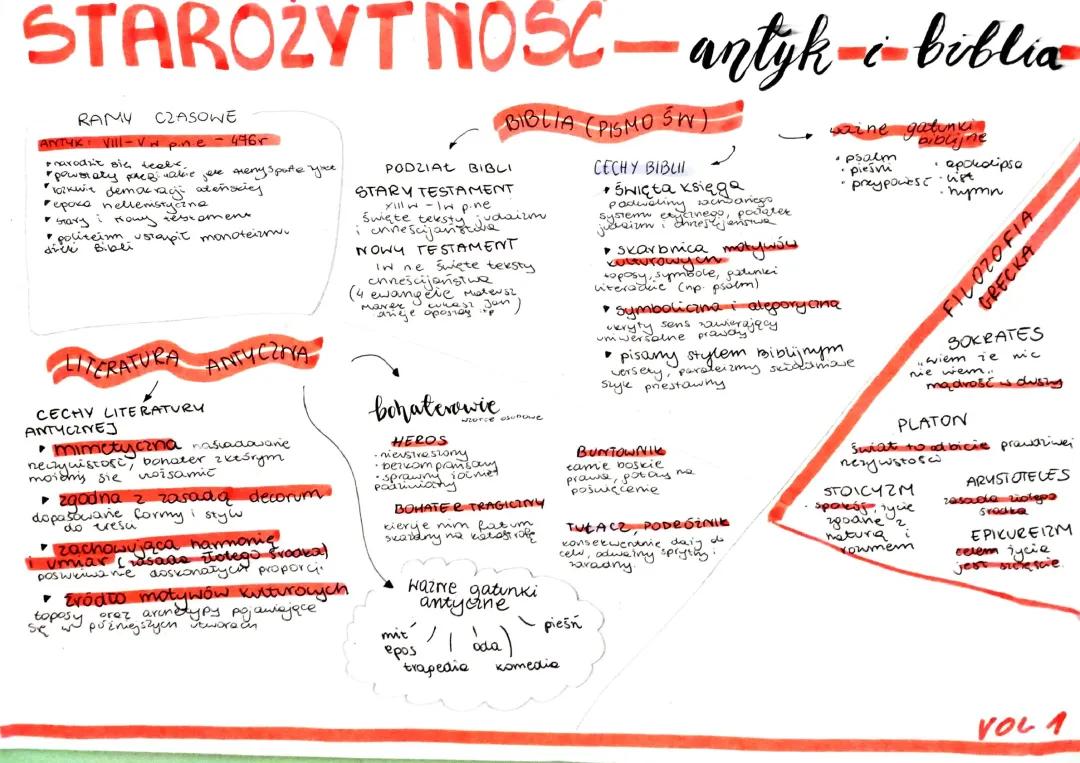 STAROŻYTNOŚĆ - antyk - i - biblia
RAMY CZASOWE
ANTYK: VIII-V w p.n.e - 476r
narodził się teatr
rozkwit demokracji ateńskiej
epoka hellenistyczna
stary i nowy testament
politeizm ustąpił monoteizmu
dzięki Bibli
BIBLIA (PISMO ŚW)
PODZIAŁ BIBLI
STARY TESTAMENT
XIII w - I w p.ne
święte teksty judaizm
i chrześcijaństwa
NOWY TESTAMENT
I w ne święte teksty
chrześcijaństwa
(4 ewangelie Mateusz
Marek Łukasz Jan)
dzieje apostol itp
CECHY BIBLII
święta księga
podwaliny zachodniego
systemu etycznego, początek
judaizm i chrześcijaństwa
skarbnica motywów
kulturowych
toposy, symbole, gatunki
literackie (np. psalm)
symboliczna i alegoryczna
ukryty sens zawierający
uniwersalne prawdy
pisany stylem Biblijnym
wersety, paralelizmy składniowe
szyk przestawny
ważne gatunki
biblijne
psalm
pieśni
przypowieść
apokalipsa
list
hymn
FILOZOFIA
GRECKA
SOKRATES
"wiem że nic
nie wiem"
mądrość w duszy
PLATON
świat to odbicie prawdziwej
rzeczywistości
STOICYZM
spokój, życie
zgodne z
naturą i
rozumem
ARYSTOTELES
zasada złotego
środka
EPIKUREIZM
celem życia
jest szczęście
LITERATURA ANTYCZNA
CECHY LITERATURY
ANTYCZNEJ
mimetyczna naśladowanie
rzeczywistość, bohater z którym
możemy się utożsamić
zgodna z zasadą decorum
dopasowanie formy i stylu
do treści
zachowująca harmonię
i umiar (zasada złotego środka)
poszukiwanie doskonałych proporcji
źródło motywów kulturowych
toposy oraz archetypy pojawiające
się w późniejszych utworach
bohaterowie
wzorce osobowe
HEROS
nieustraszony
bezkompromisowy
sprawny
BOHATER TRAGICZNY
kieruje nim fatum
skazany na katastrofę
BUNTOWNIK
łamie boskie
prawa, gotowy na
poświęcenie
TUŁACZ, PODRÓŻNIK
konsekwentnie dąży do
celu, odważny sprytny i
zaradny.
ważne gatunki
antyczne
mit
epos
oda
pieśń
tragedia
komedia
VOL 1